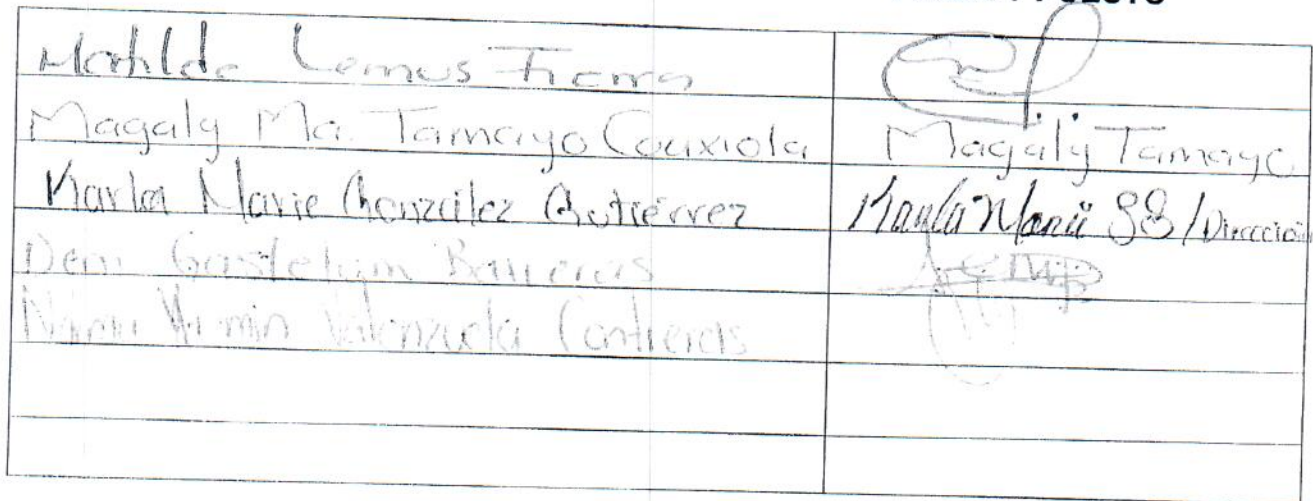 Matilde Lemus Fierros
Magaly Ma. Tamayo Couxiola Magaly Tamayo
Karla Marie González Gutiérrez Karla Marie GG / Dirección
Deni Gastelum Barreras
Yazmin Valenzuela Contreras